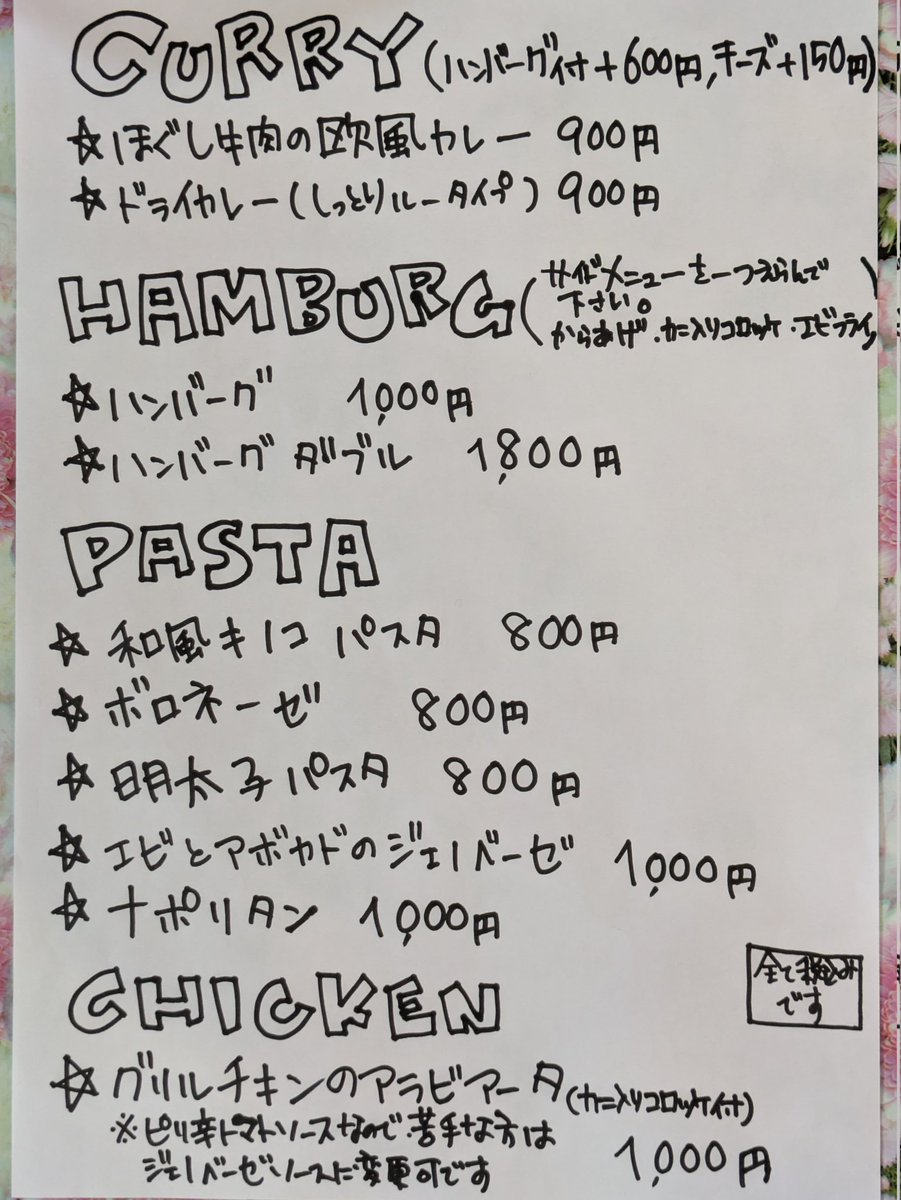 CURRY (ハンバーグ付+600円,チーズ+150円)
☆ほぐし牛肉の欧風カレー 900円
☆ドライカレー(しっとりルータイプ) 900円
HAMBURG(サイドメニューを一つえらんで
下さい。
からあげ・カニ入りコロッケ・エビフライ)
☆ハンバーグ 1,000円
☆ハンバーグ ダブル 1,800円
PASTA
☆ 和風キノコ パスタ 800円
☆ ボロネーゼ 800円
☆ 明太子パスタ 800円
☆ エビとアボカドのジェノバーゼ 1,000円
☆ ナポリタン 1,000円
全て税込み
です
CHICKEN
☆ グリルチキンのアラビアータ(カニ入りコロッケ付)
※ピリ辛トマトソースなので苦手な方は
ジェノバーゼソースに変更可です 1,000円